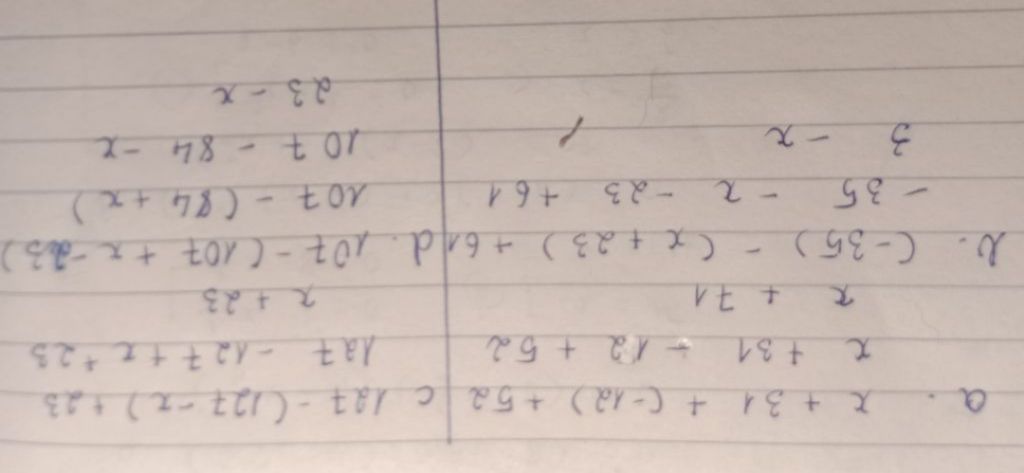 a. x + 31 + (-12) + 52
x + 31 - 12 + 52
x + 71
b. (-35) - (x + 23) + 61
- 35 - x - 23 + 61
3 - x
c 127 - (127 - x) + 23
127 - 127 + x + 23
x + 23
d. 107 - (107 + x - 23)
107 - (84 + x)
107 - 84 - x
23 - x